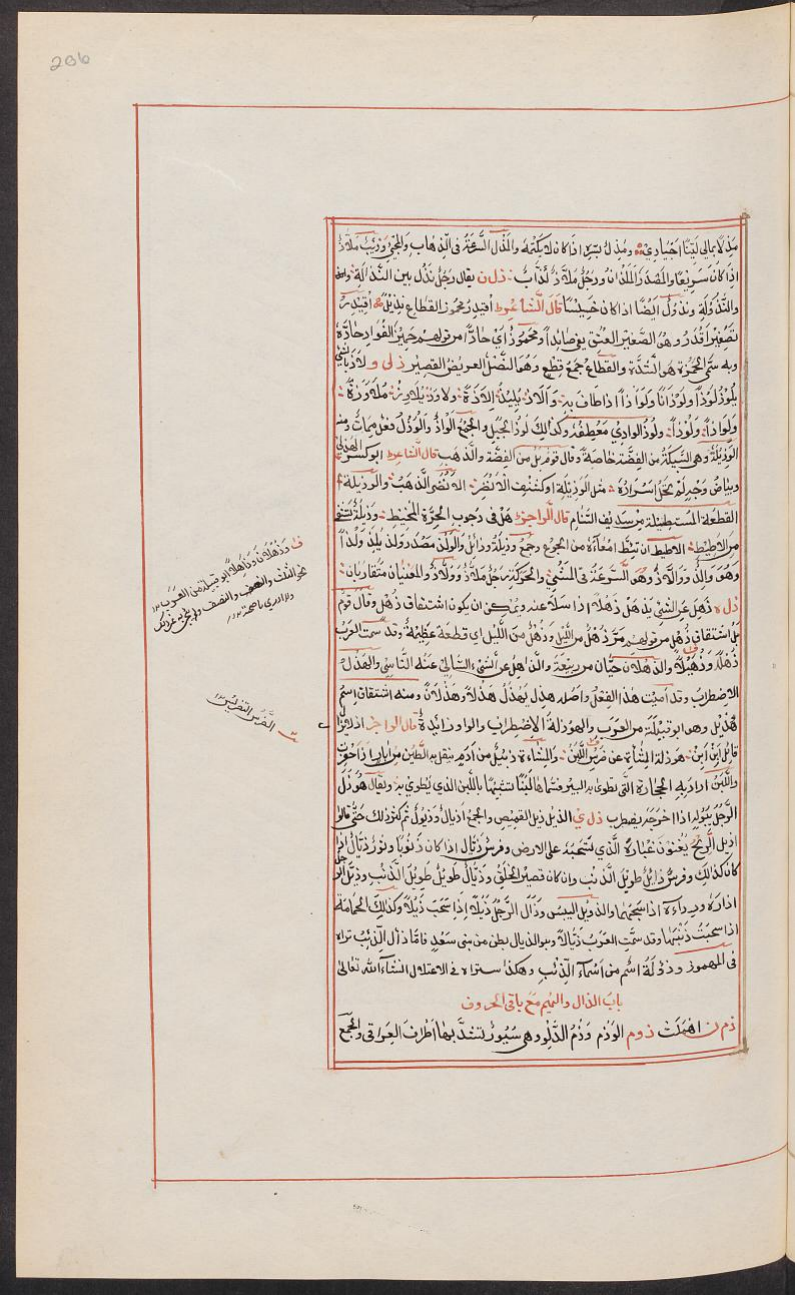 206
مذلا بمالي لينا اجيادي ومذل بسره اذا كان لا يكتمه والمذل السرعة فى الذهاب والمجي وذئب ملاذ
اذا كان سريعا والمصدر الملذان ورجل ملاذ كذاب ذ ل ن يقال رجل نذل بين النذالة
والنذولة ونذول ايضا اذا كان خسيسا قال الشاعر اقيدر محموز القطاع نذيل اقيدر
تصغير اقدر وهو الصغير العنق يعنى صائدا ومحموز اي حاد من قولهم حميز الفواد حاده
وبه سمى الحمزة هو الشدة والقطاع جمع قطع وهو النصل العريض القصير ذ ل و لاذ بالشي
يلوذ لوذا ولوذانا ولواذا اذا طاف به والاذ يليذ الاذة ولاوذ يلاوذ ملاوذة
ولواذا ولوذا ولوذ الوادي منعطفه وكذلك لوذ الجبل والجمع الواذ والوذل فعل ممات ومنه
الوذيلة وهى السبيكة من الفضة خاصة وقال قوم بل من الفضة والذهب قال الشاعر ابو كبير الهذلي
وبياض وجه لم تحل اسراره مثل الوذيلة او كشنف الانضر الانضر الذهب والوذيلة
القطعة المستطيلة من سديف السنام قال الراجز هل فى دجوب الحرة المخيط وذيلة تشفي
من الاطيط الاطيط ان تئط امعاؤه من الجوع وجمع وذيلة وذائل والولذ مصدر ولذ يلذ ولذا
وهو والذ وولاذ وهو السرعة فى المشي والحركة رجل ملاذ وولاذ والمعنيان متقاربان
ذ ل ه ذهل عن الشي يذهل ذهلا اذا سلا عنه ويمكن ان يكون اشتقاق ذهل وقال قوم
بل اشتقاق ذهل من قولهم مر ذهل من الليل وذهل من الليل اي قطعة عظيمة وقد سمت العرب
ذهلا وذهيلا والذهلان حيان من ربيعة والذاهل عن الشيء السالي عنه الناسي والهذل
الاضطراب وقد اميت هذا الفعل واصله هذل يهذل هذلا وهذلانا ومنه اشتقاق اسم
هذيل وهو ابو قبيلة من العرب والهوذلة الاضطراب والواو زائدة قال الراجز اذ لا يزال
قائل ابن ابن هوذلة المشاة عن ضرس اللبن والمشاة زبيل من ادم ينقل به الطين من ابار اذا حفرت
واللبن اراد به الحجارة التى تطوى به البير فسماها لبنا تشبيها باللبن الذي يطوى به ويقال هوذل
الرجل ببوله اذا اخرجه يضطرب ذ ل ي الذيل ذيل القميص والجمع اذيال وذيول ثم كثر ذلك حتى قالوا
اذيال الريح يعنون غباره الذي تسحبه على الارض وفرس ذيال اذا كان ذنوبا وثور ذيال اذا
كان كذلك وفرس ذائل طويل الذنب وان كان قصير الخلق وذيال طويل طويل الذنب وذيل الرجل
ازاره ورداءه اذا سحبهما والذويل اليبس وذال الرجل ذيلا اذا سحب ذيلا وكذلك الحمامة
اذا سحبت ذنبها وقد سمت العرب ذيالا وبنو الذيال بطن من بنى سعد فاما ذأل الذئب تراه
فى المهموز وذؤالة اسم من اسماء الذئب وهكذا ستراه فى الاعتلال انشاء الله تعالى
باب الذال والميم مع باقى الحروف
ذ م ن اهملت ذ و م الوذم وذم الدلو وهى سيور تشد بها اطراف العراقى والجمع
ف وذهلان وذاهلا ابو قبيلة من العرب
ت الضرس التضريس